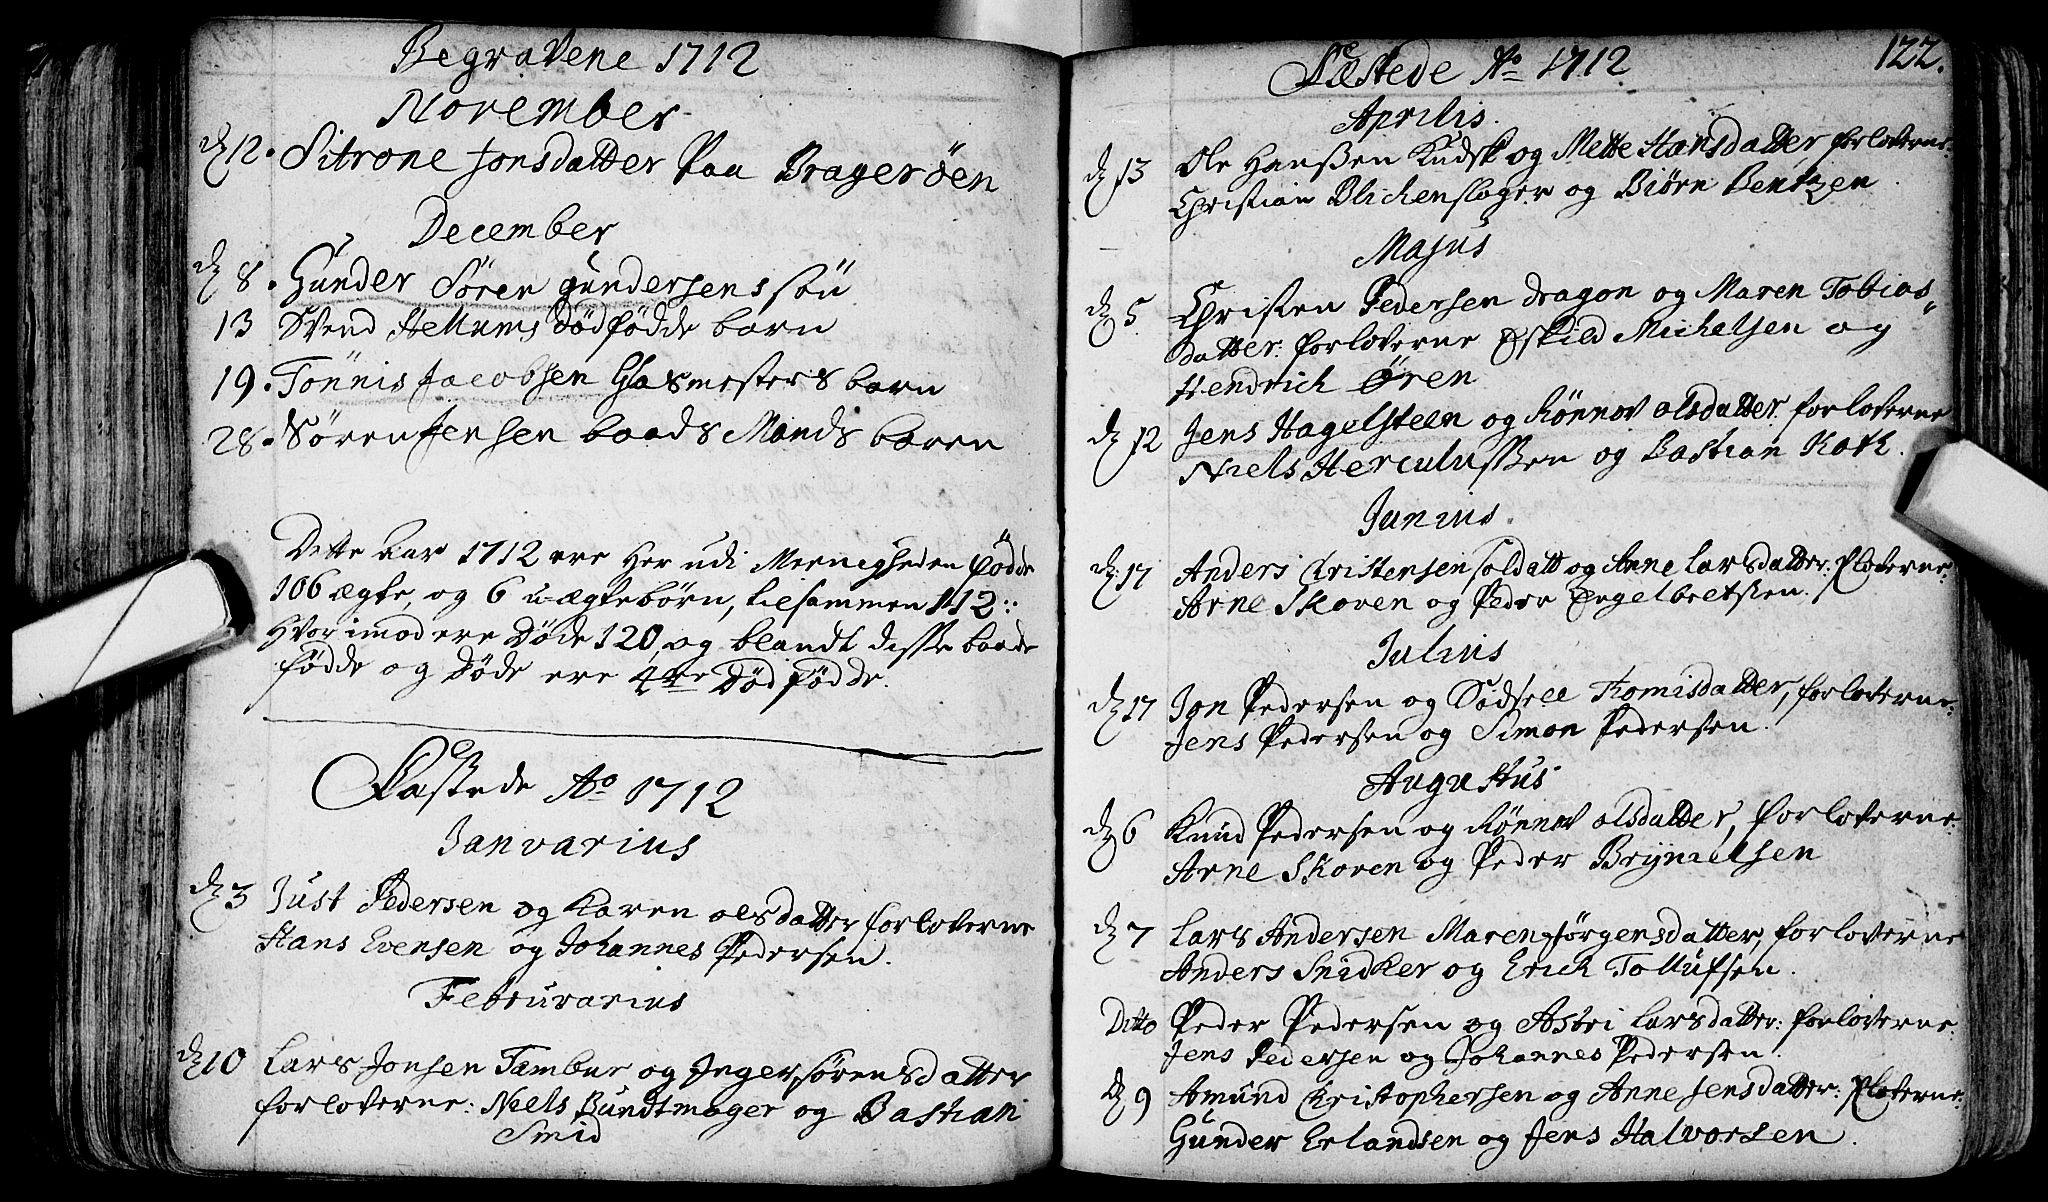 Begravene 1712
November
d 12. Sitrone Jonsdatter Paa Bragerøen
December
d 8. Gunder Sören gundersens sön
13 Svend Hellums dödfödde barn
19. Tönnis Jacobsen Glasmesters barn
28. Sören Jensen baads Mands baren
Dette aar 1712 ere Her udi Meenigheden födde
106 ægte, og 6 u-ægte börn, tilsammen 112:
Hvor imod ere Døde 120, og blandt disse baade
födde og Døde ere 4re Död födde.
Fæstede Ao 1712
Janvarius
d 3 Just Pedersen og Karen olsdatter forloverne
Hans Evensen og Johannes Pedersen.
Februvarius
d 10 Lars Jonsen Tambur og Inger sörensdatter
forloverne: Niels Bundtmager og Bastian
Smid
Fæstede Ao 1712
122.
Aprilis
d 13 Ole Hanßen Kudsk og Mette Hansdatter forloverne:
Christian Blichenslager og Biørn Bentzen
Majus
d 5 Christen Pedersen dragon og Maren Tobias
datter: forloverne Eskild Michelsen og
Hendrich Ören
d 12 Jens Hagelsteen og Rönnov olsdatter. forloverne
Niels Herculußen og Bastian Kock.
Junius
d 17 Anders Christensen soldatt og Anne Larsdatter: floverne:
Arne Skoven og Peder Engelbretsen.
Julius
d 17 Jon Pedersen og Sidsell Tomisdatter, forloverne:
Jens Pedersen og Simon Pedersen.
Augustus
d 6 Knud Pedersen og Rönnov olsdatter, forloverne:
Arne Skoven og Peder Brynielsen
d 7 Lars Andersen Maren Jörgensdatter, forloverne
Anders Snidker og Erich Tollufsen.
Ditto Peder Pedersen og Astri Larsdatter: forloverne:
Jens Pedersen og Johannes Pedersen.
d 9 Amund Christophersen og Anne Jensdatter: floverne:
Gunder Erlandsen og Jens Halvorsen.